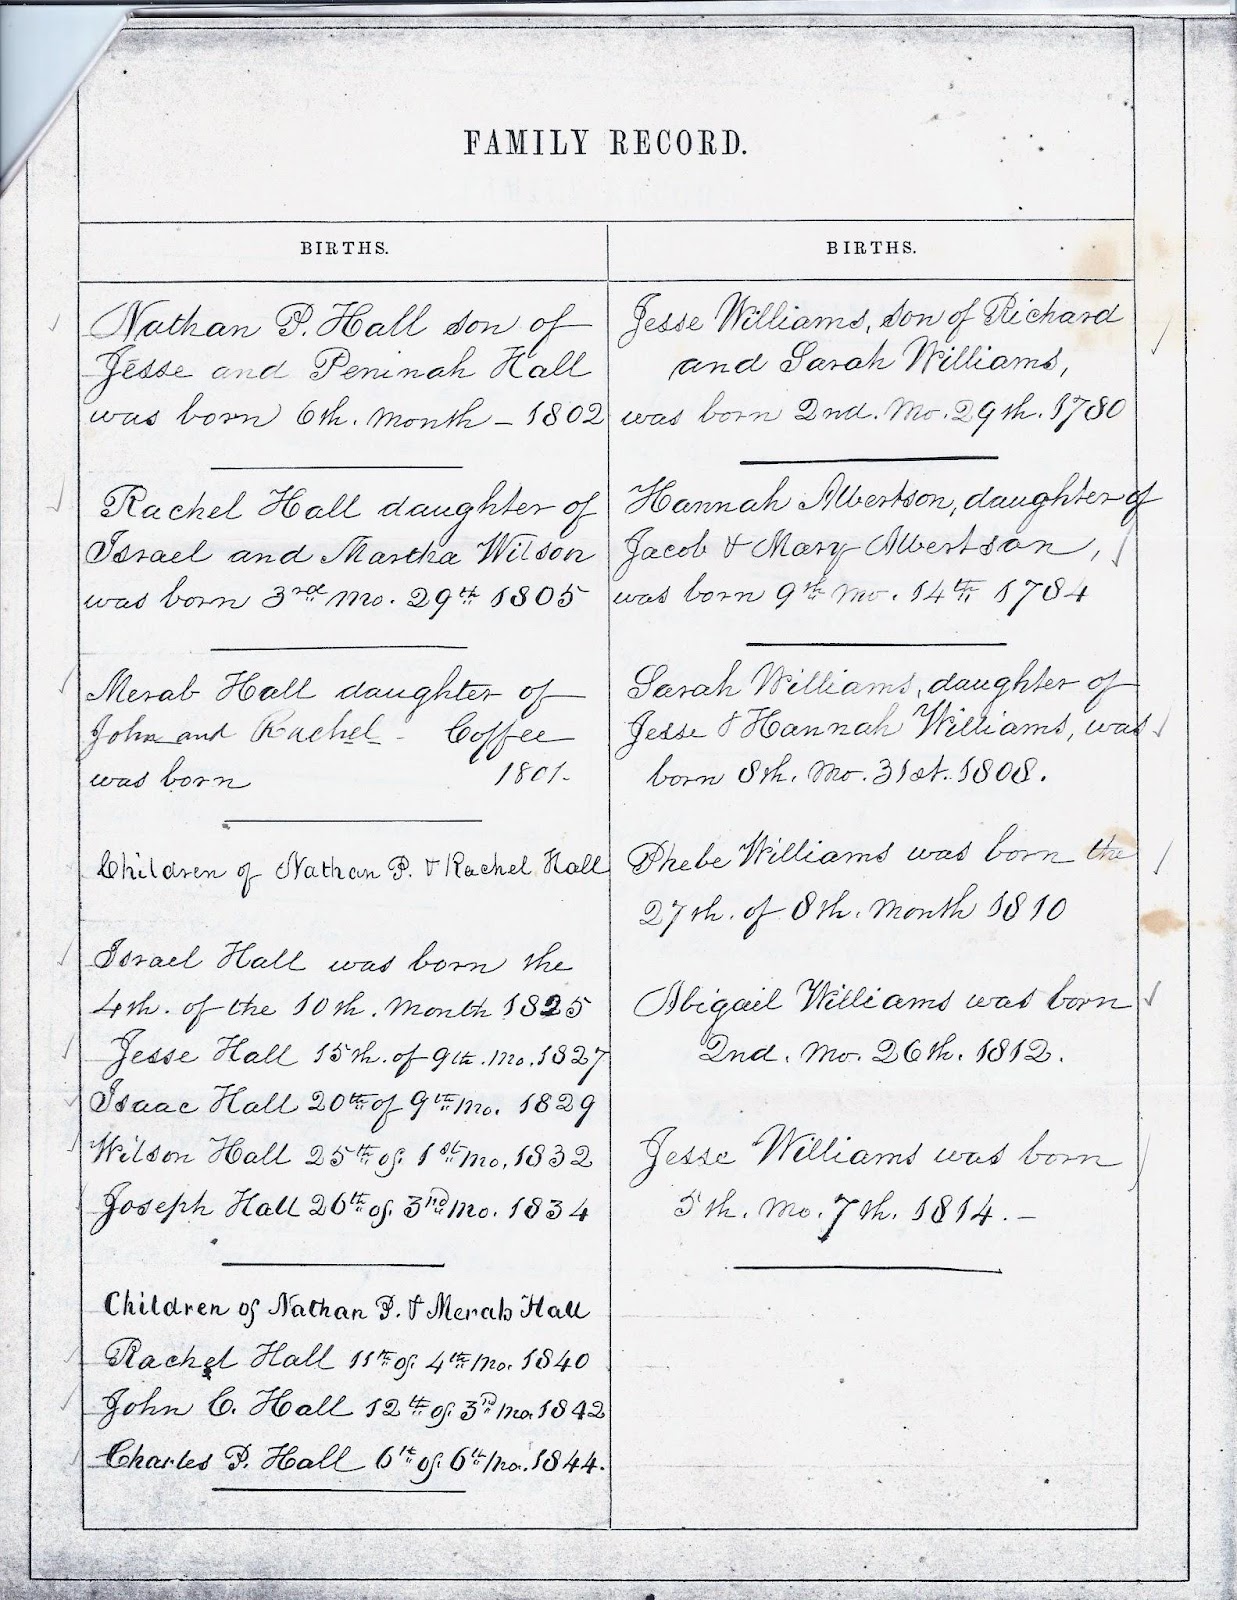 FAMILY RECORD.
BIRTHS.
Nathan P. Hall son of
Jesse and Peninah Hall
was born 6th. month – 1802
Rachel Hall daughter of
Israel and Martha Wilson
was born 3rd mo. 29th 1805
Merab Hall daughter of
John and Rachel - Coffee
was born 1801.
Children of Nathan P. & Rachel Hall
Israel Hall was born the
4th. of the 10th. month 1825
Jesse Hall 15th. of 9th. mo. 1827
Isaac Hall 20th of 9th mo. 1829
Wilson Hall 25th of 1st mo. 1832
Joseph Hall 26th of 3rd mo. 1834
Children of Nathan P. & Merab Hall
Rachel Hall 11th of 4th mo. 1840
John C. Hall 12th of 3rd mo. 1842
Charles P. Hall 6th of 6th mo. 1844.
BIRTHS.
Jesse Williams, son of Richard
and Sarah Williams,
was born 2nd. Mo. 29th. 1780
Hannah Albertson, daughter of
Jacob & Mary Albertson,
was born 9th Mo. 14th 1784
Sarah Williams, daughter of
Jesse & Hannah Williams, was
born 8th. Mo. 31st. 1808.
Phebe Williams was born the
27th. of 8th. month 1810
Abigail Williams was born
2nd. Mo. 26th. 1812.
Jesse Williams was born
5th. Mo. 7th. 1814. –